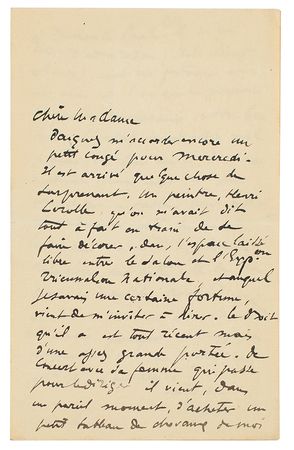 Chère Madame
Daignez m'accorder encore un
petit congé pour mercredi.
Il est arrivé quelque chose de
surprenant. Un peintre, Henri
qu'on m'avait dit
tout à fait en train de se
faire décorer, dans l'espace laissé
libre entre le Salon et l'Expon
Triennale Nationale, et auquel
je savais une certaine fortune,
vient de m'inviter à dîner. Le
qu'il a est tout récent mais
d'une assez grande portée. De
concert avec sa femme qui
pour le il vient, dans
un pareil moment, d'acheter un
petit tableau de chevaux de moi